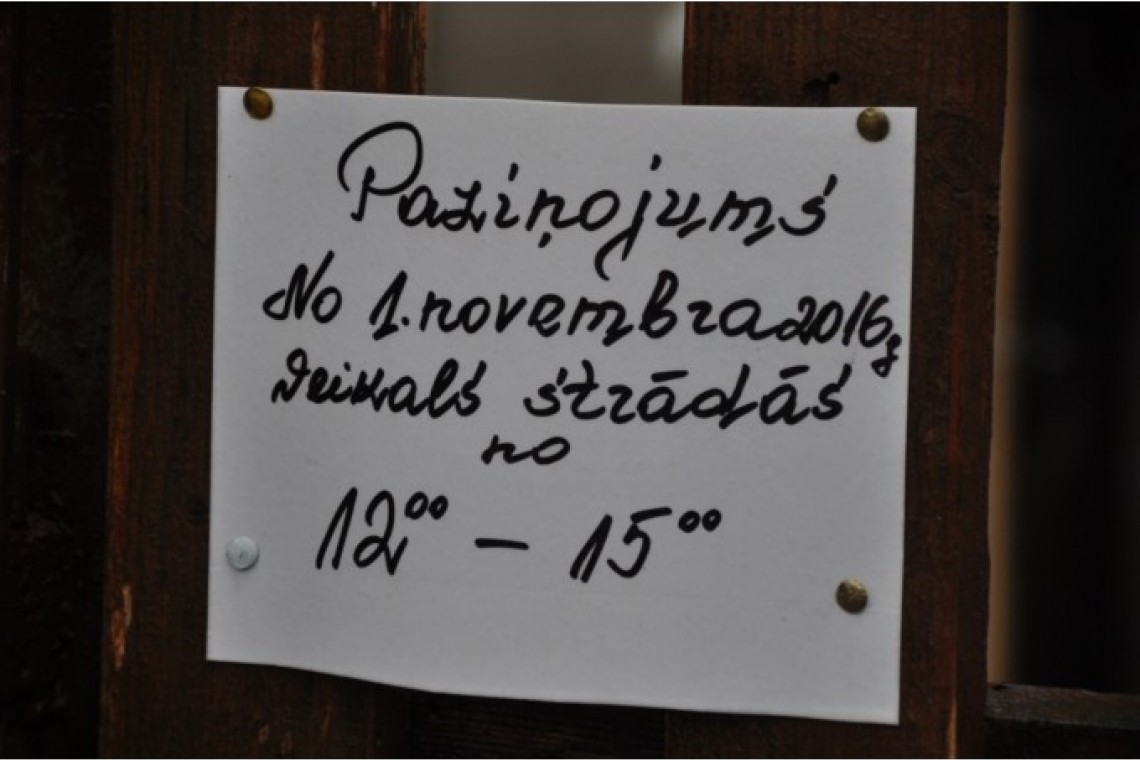 Paziņojums
No 1. novembra 2016g
Veikals strādās
no
12⁰⁰ – 15⁰⁰